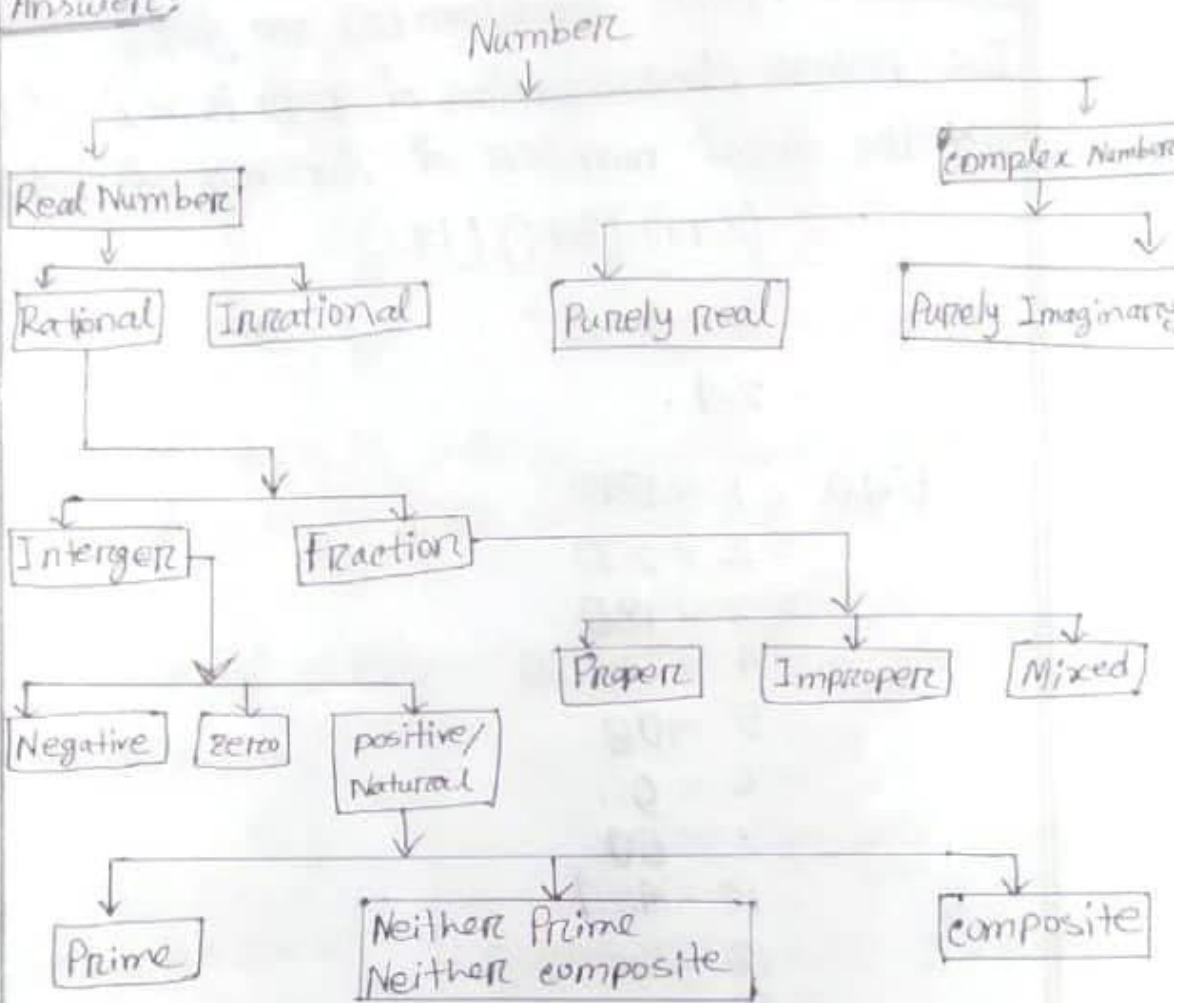 Answer:
Number
Real Number
Complex Number
Rational
Irrational
Purely real
Purely Imaginary
Interger
Fraction
Proper
Improper
Mixed
Negative
zero
positive/
Natural
Prime
Neither Prime
Neither composite
composite